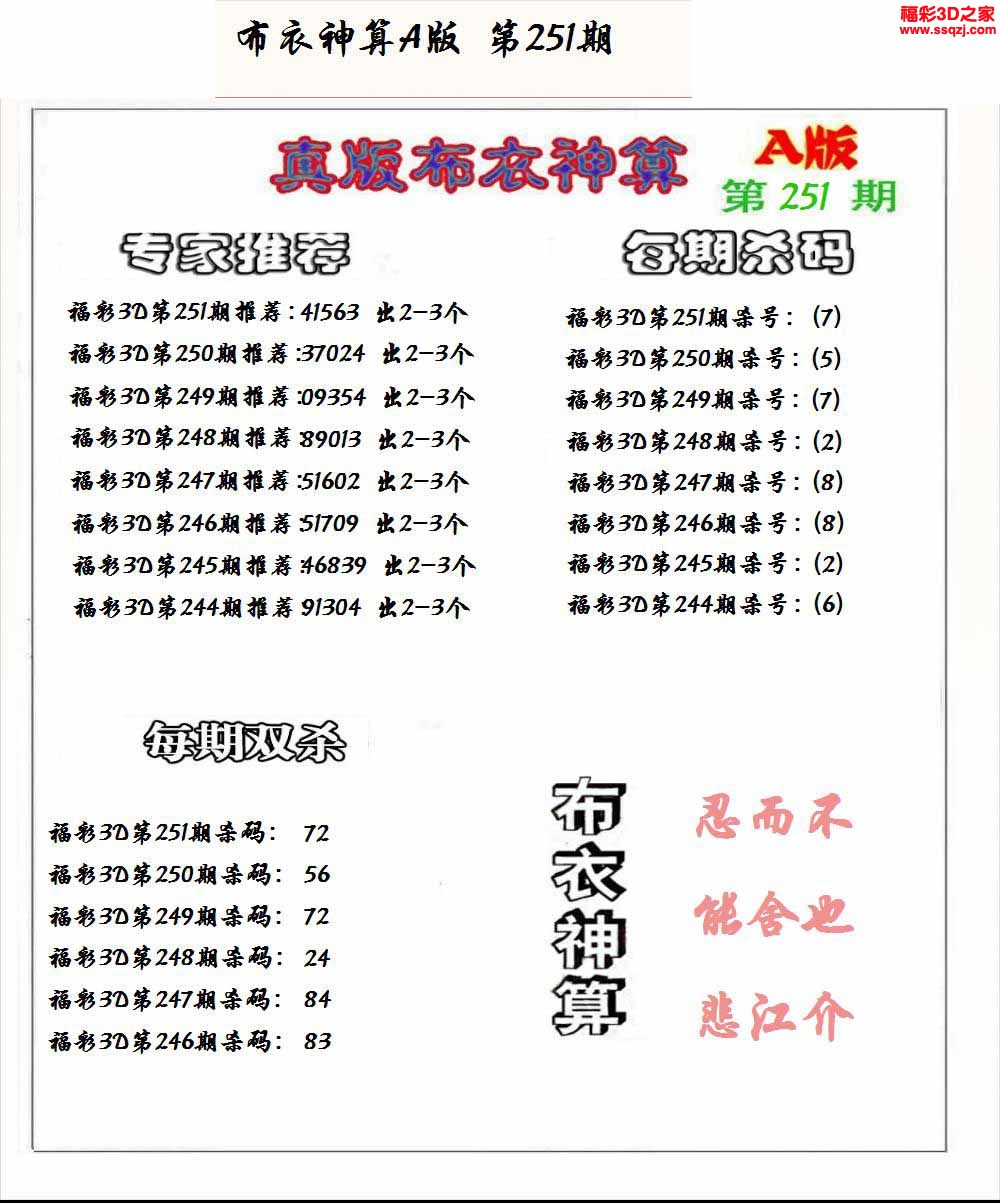 布衣神算A版 第251期
福彩3D之家
www.ssqzj.com
真版布衣神算
A版
第 251 期
专家推荐
福彩3D第251期推荐:41563 出2-3个
福彩3D第250期推荐:37024 出2-3个
福彩3D第249期推荐:09354 出2-3个
福彩3D第248期推荐:89013 出2-3个
福彩3D第247期推荐:51602 出2-3个
福彩3D第246期推荐:51709 出2-3个
福彩3D第245期推荐:46839 出2-3个
福彩3D第244期推荐:91304 出2-3个
每期杀码
福彩3D第251期杀号:(7)
福彩3D第250期杀号:(5)
福彩3D第249期杀号:(7)
福彩3D第248期杀号:(2)
福彩3D第247期杀号:(8)
福彩3D第246期杀号:(8)
福彩3D第245期杀号:(2)
福彩3D第244期杀号:(6)
每期双杀
福彩3D第251期杀码: 72
福彩3D第250期杀码: 56
福彩3D第249期杀码: 72
福彩3D第248期杀码: 24
福彩3D第247期杀码: 84
福彩3D第246期杀码: 83
布衣神算
忍而不
能舍也
悲江介